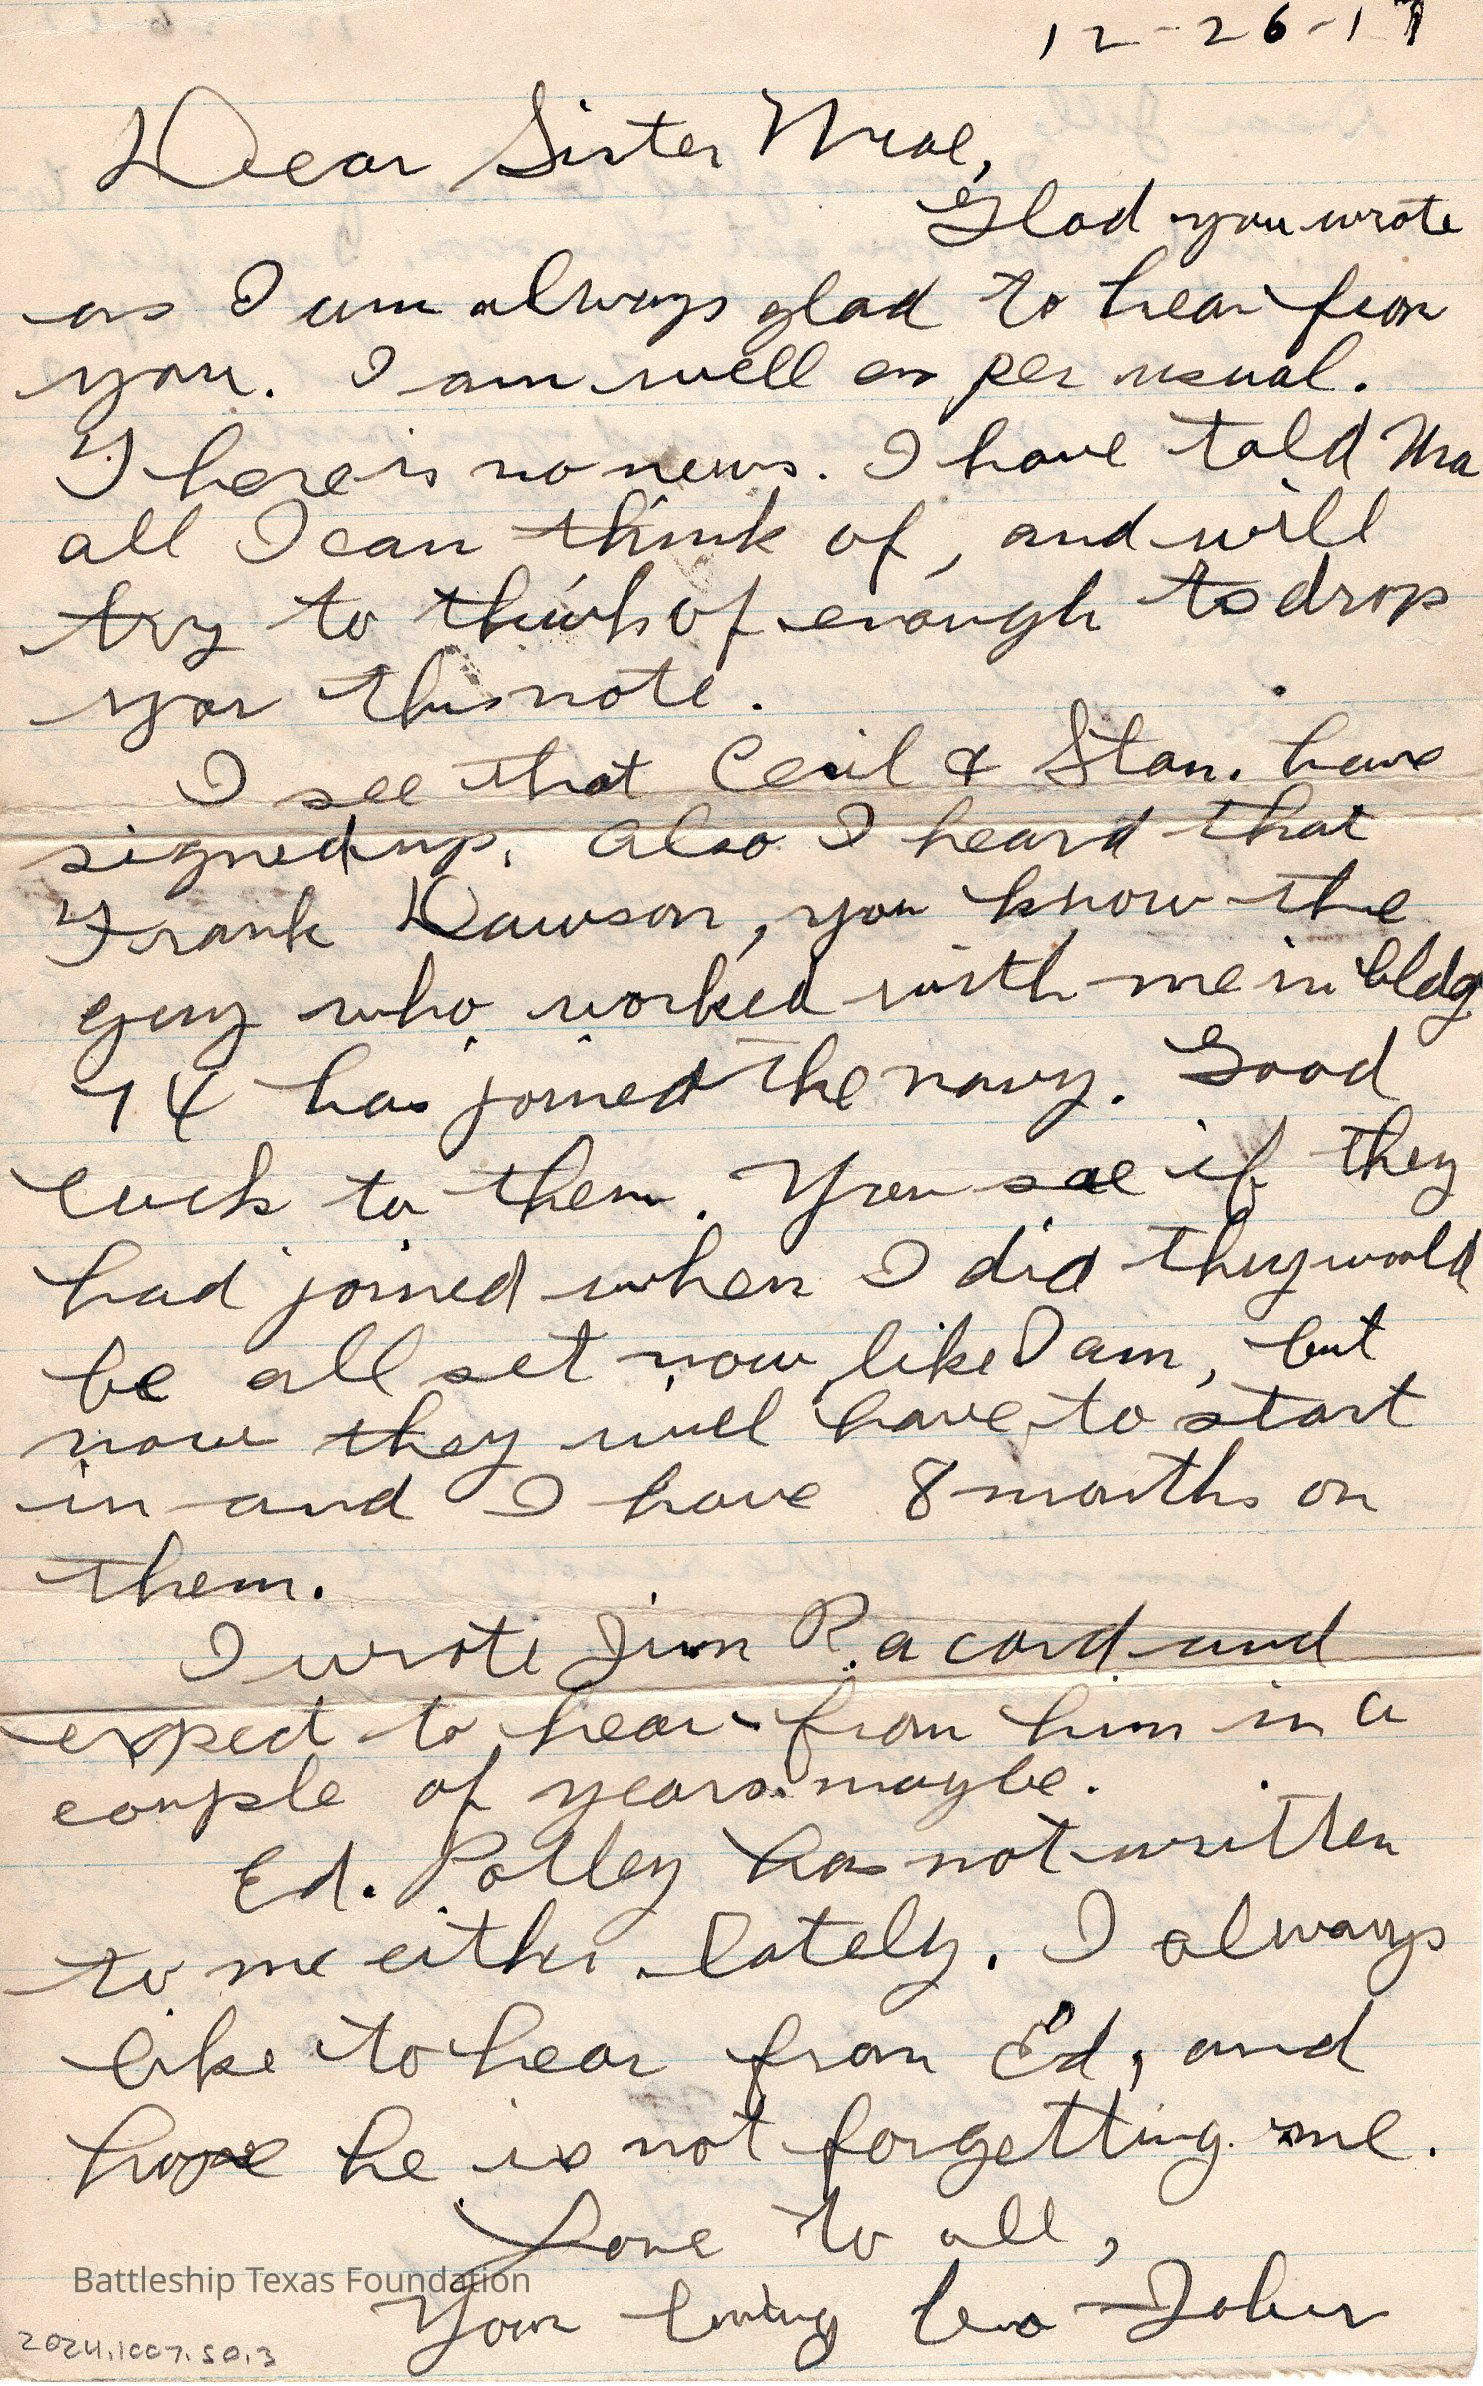 12-26-17
Dear Sister Mae,
Glad you wrote
as I am always glad to hear from
you. I am well as per usual.
There is no news. I have told Ma
all I can think of, and will
try to think of enough to drop
you this note.
I see that Cecil & Stan. have
signed up. Also I heard that
Frank Dawson, you know the
guy who worked with me in bldg
74 has joined the navy. Good
luck to them. You see if they
had joined when I did they would
be all set now like I am, but
now they will have to start
in and I have 8 months on
them.
I wrote Jim R. a card and
expect to hear from him in a
couple of years maybe.
Ed. Polley has not written
to me either lately. I always
like to hear from Ed, and
hope he is not forgetting me.
Love to all,
Your loving bro John
Battleship Texas Foundation
2024.1007.50.3